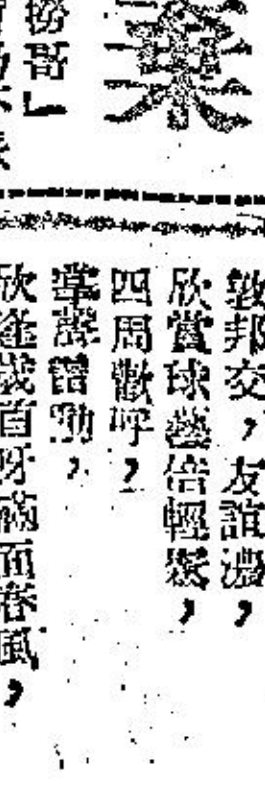 敦邦交,友誼濃,
欣賞球藝倍輕鬆,
四周歡呼,
掌聲雷動,
欣逢歲首呀滿面春風,